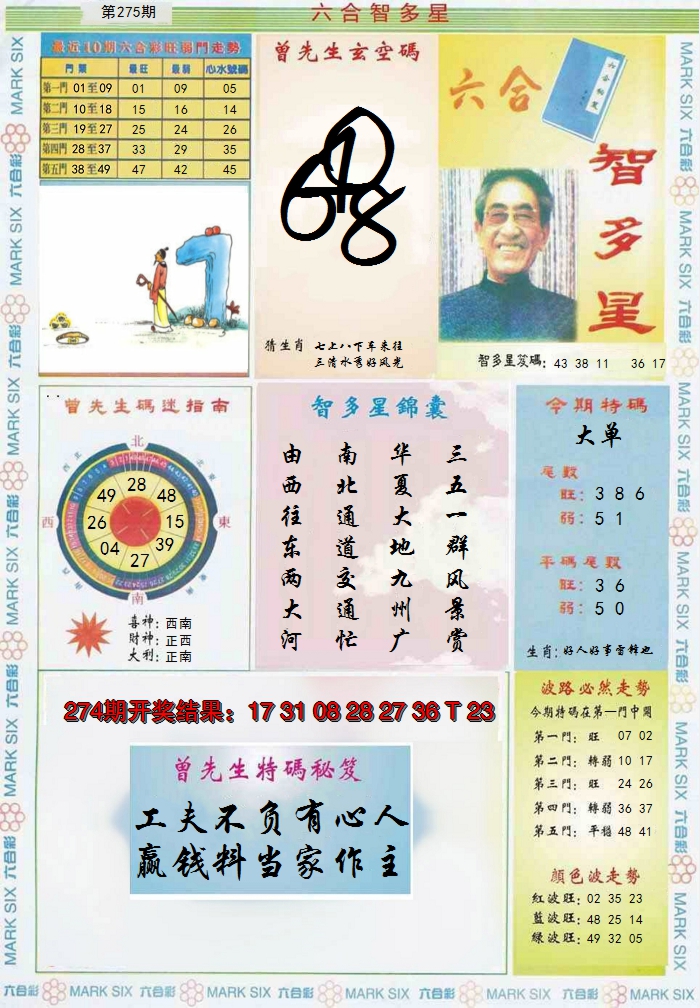 第275期
六合智多星
最近10期六合彩旺弱門走勢
門票 最旺 最弱 心水號碼
第一門 01至09 01 09 05
第二門 10至18 15 16 14
第三門 19至27 25 24 26
第四門 28至37 33 29 35
第五門 38至49 47 42 45
曾先生玄空碼
猜生肖 七上八下车来往
三清水秀好风光
六合
智多星
智多星笈碼: 43 38 11 36 17
曾先生碼迷指南
北
西
東
南
49 28 48
26 15
04 27 39
喜神: 西南
財神: 正西
大利: 正南
智多星錦囊
三五一群风景赏
华夏大地九州广
南北通道交通忙
由西往东两大河
今期特碼
大单
尾数
旺: 3 8 6
弱: 5 1
平碼尾数
旺: 3 6
弱: 5 0
生肖: 好人好事雷锋也
274期开奖结果：17 31 08 28 27 36 T 23
曾先生特碼秘笈
工夫不负有心人
赢钱料当家作主
波路必然走勢
今期特碼在第一門中開
第一門: 旺 07 02
第二門: 轉弱 10 17
第三門: 旺 24 26
第四門: 轉弱 36 37
第五門: 平穩 48 41
顔色波走勢
紅波旺: 02 35 23
藍波旺: 48 25 14
綠波旺: 49 32 05
六合彩 MARK SIX 六合彩 MARK SIX 六合彩 MARK SIX 六合彩 MARK SIX 六合彩